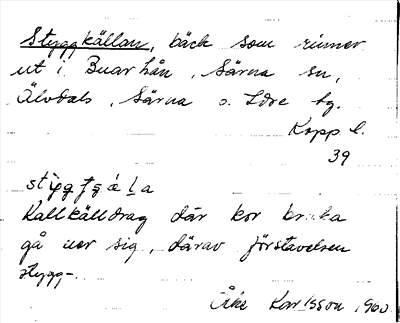 Styggkällan, bäck som rinner
ut i Buarhån, Särna sn,
Älvdals, Särna o. Idre tg.
Kopp l.
39
Kallkälldrag där kor bruka
gå ner sig, därav förstavelsen
stygg-.
Åke Karlsson 1960